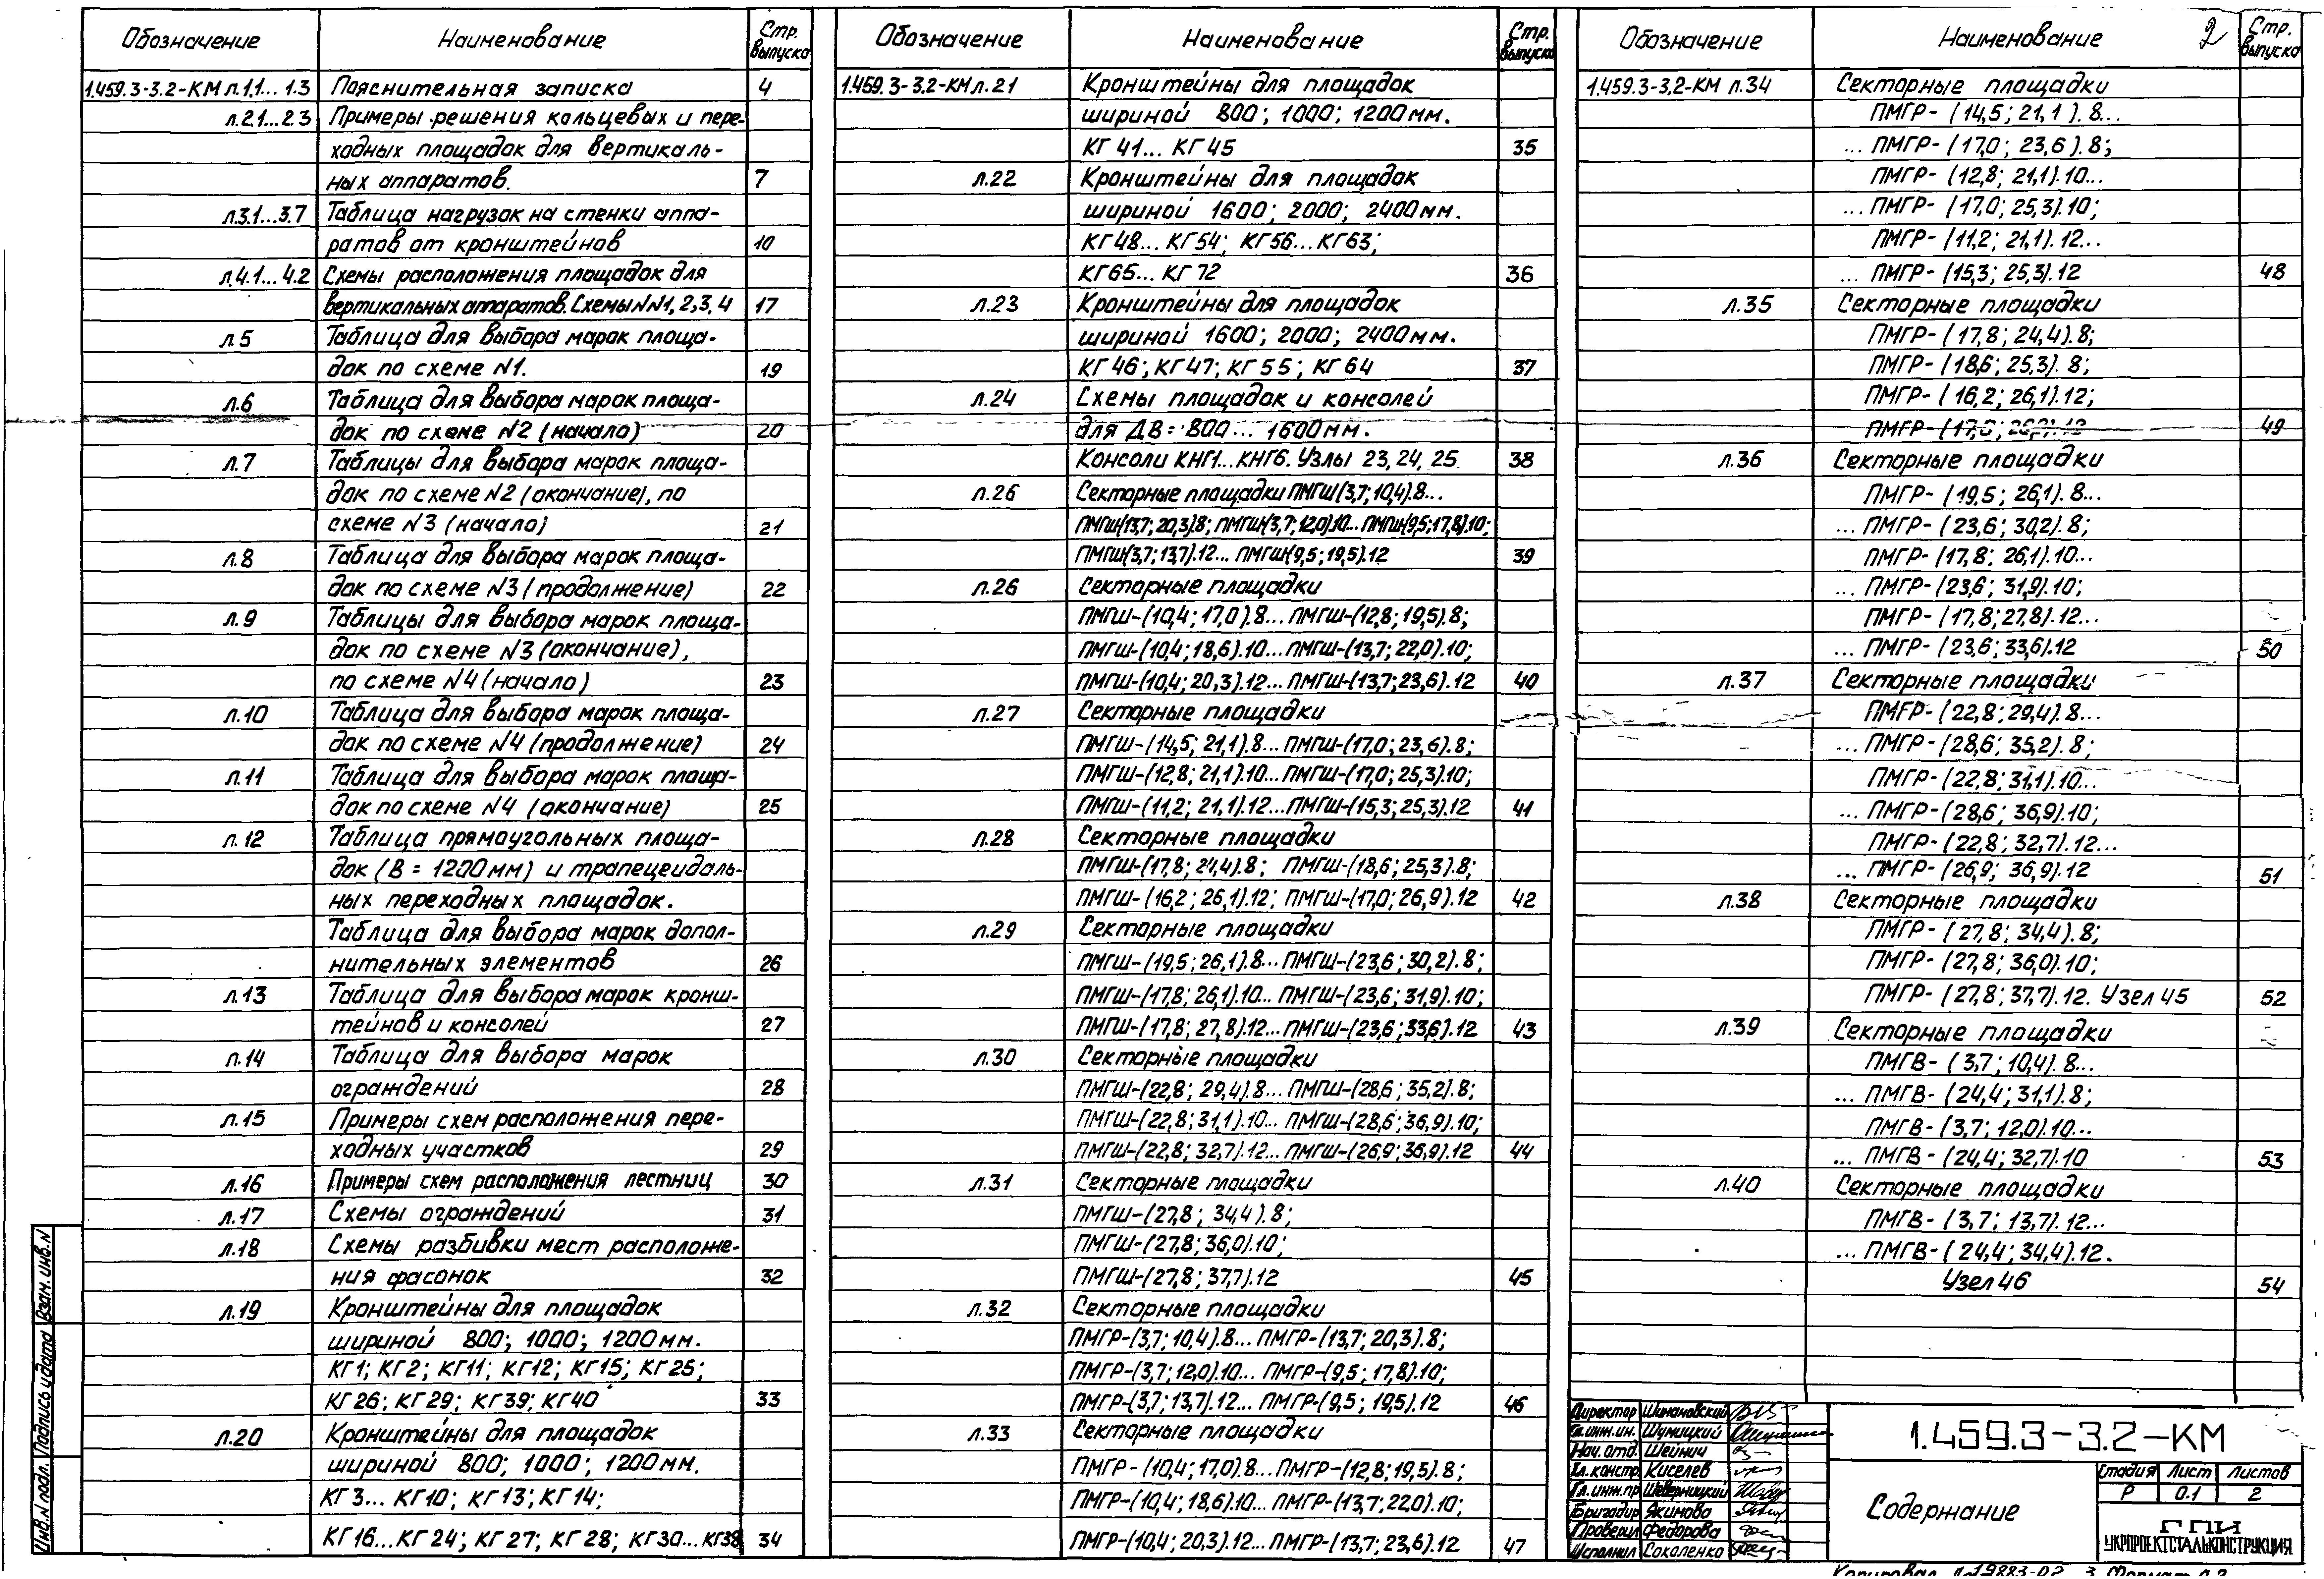 Обозначение Наименование Стр. выпуска
1.459.3-3.2-КМ л.1.1... 1.3 Пояснительная записка 4
л.2.1...2.3 Примеры решения кольцевых и пере-
ходных площадок для вертикаль-
ных аппаратов. 7
л.3.1...3.7 Таблица нагрузок на стенки аппа-
ратов от кронштейнов 10
л.4.1...4.2 Схемы расположения площадок для
вертикальных аппаратов. Схемы NN1,2,3,4 17
л.5 Таблица для выбора марок площа-
док по схеме N1. 19
л.6 Таблица для выбора марок площа-
док по схеме N2 (начало) 20
л.7 Таблицы для выбора марок площа-
док по схеме N2 (окончание), по
схеме N3 (начало) 21
л.8 Таблица для выбора марок площа-
док по схеме N3 (продолжение) 22
л.9 Таблицы для выбора марок площа-
док по схеме N3 (окончание),
по схеме N4 (начало) 23
л.10 Таблица для выбора марок площа-
док по схеме N4 (продолжение) 24
л.11 Таблица для выбора марок площа-
док по схеме N4 (окончание) 25
л.12 Таблица прямоугольных площа-
док (В = 1200мм) и трапецеидаль-
ных переходных площадок.
Таблица для выбора марок допол-
нительных элементов 26
л.13 Таблица для выбора марок кронш-
тейнов и консолей 27
л.14 Таблица для выбора марок
ограждений 28
л.15 Примеры схем расположения пере-
ходных участков 29
л.16 Примеры схем расположения лестниц 30
л.17 Схемы ограждений 31
л.18 Схемы разбивки мест расположе-
ния фасонок 32
л.19 Кронштейны для площадок
шириной 800; 1000; 1200мм.
КГ1; КГ2; КГ11; КГ12; КГ15; КГ25;
КГ26; КГ29; КГ39; КГ40 33
л.20 Кронштейны для площадок
шириной 800; 1000; 1200мм.
КГ3... КГ10; КГ13; КГ14;
КГ16...КГ24; КГ27; КГ28; КГ30...КГ38 34
Обозначение Наименование Стр. выпуска
1.459.3-3.2-КМ л.21 Кронштейны для площадок
шириной 800; 1000; 1200мм.
КГ41... КГ45 35
л.22 Кронштейны для площадок
шириной 1600; 2000; 2400мм.
КГ48... КГ54; КГ56...КГ63;
КГ65... КГ72 36
л.23 Кронштейны для площадок
шириной 1600; 2000; 2400мм.
КГ46; КГ47; КГ55; КГ64 37
л.24 Схемы площадок и консолей
для ДВ= 800... 1600мм.
Консоли КНГ1...КНГ6. Узлы 23, 24, 25 38
л.26 Секторные площадки ПМГШ(3,7; 10,4).8...
ПМГШ(13,7; 20,3)8; ПМГШ(3,7; 12,0).10...ПМГШ(9,5;17,8).10;
ПМГШ(3,7; 13,7).12... ПМГШ(9,5; 19,5).12 39
л.26 Секторные площадки
ПМГШ-(10,4; 17,0).8...ПМГШ-(12,8; 19,5).8;
ПМГШ-(10,4; 18,6).10...ПМГШ-(13,7; 22,0).10;
ПМГШ-(10,4; 20,3).12...ПМГШ-(13,7; 23,6).12 40
л.27 Секторные площадки
ПМГШ-(14,5; 21,1).8...ПМГШ-(17,0; 23,6).8;
ПМГШ-(12,8; 21,1).10...ПМГШ-(17,0; 25,3).10;
ПМГШ-(11,2; 21,1).12...ПМГШ-(15,3; 25,3).12 41
л.28 Секторные площадки
ПМГШ-(17,8; 24,4).8; ПМГШ-(18,6; 25,3).8;
ПМГШ-(16,2; 26,1).12; ПМГШ-(17,0; 26,9).12 42
л.29 Секторные площадки
ПМГШ-(19,5; 26,1).8...ПМГШ-(23,6; 30,2).8;
ПМГШ-(17,8; 26,1).10...ПМГШ-(23,6; 31,9).10;
ПМГШ-(17,8; 27,8).12...ПМГШ-(23,6; 33,6).12 43
л.30 Секторные площадки
ПМГШ-(22,8; 29,4).8...ПМГШ-(28,6; 35,2).8;
ПМГШ-(22,8; 31,1).10... ПМГШ-(28,6; 36,9).10;
ПМГШ-(22,8; 32,7).12...ПМГШ-(26,9; 36,9).12 44
л.31 Секторные площадки
ПМГШ-(27,8; 34,4).8;
ПМГШ-(27,8; 36,0).10;
ПМГШ-(27,8; 37,7).12 45
л.32 Секторные площадки
ПМГР-(3,7; 10,4).8...ПМГР-(13,7; 20,3).8;
ПМГР-(3,7; 12,0).10... ПМГР-(9,5; 17,8).10;
ПМГР-(3,7; 13,7).12... ПМГР-(9,5; 19,5).12 46
л.33 Секторные площадки
ПМГР-(10,4; 17,0).8...ПМГР-(12,8; 19,5).8;
ПМГР-(10,4; 18,6).10...ПМГР-(13,7; 22,0).10;
ПМГР-(10,4; 20,3).12...ПМГР-(13,7; 23,6).12 47
Обозначение Наименование 2 Стр. выпуска
1.459.3-3.2-КМ л.34 Секторные площадки
ПМГР-(14,5; 21,1).8...
... ПМГР-(17,0; 23,6).8;
ПМГР-(12,8; 21,1).10...
... ПМГР-(17,0; 25,3).10;
ПМГР-(11,2; 21,1).12...
... ПМГР-(15,3; 25,3).12 48
л.35 Секторные площадки
ПМГР-(17,8; 24,4).8;
ПМГР-(18,6; 25,3).8;
ПМГР-(16,2; 26,1).12;
ПМГР-(17,0; 26,9).12 49
л.36 Секторные площадки
ПМГР-(19,5; 26,1).8...
... ПМГР-(23,6; 30,2).8;
ПМГР-(17,8; 26,1).10...
... ПМГР-(23,6; 31,9).10;
ПМГР-(17,8; 27,8).12...
... ПМГР-(23,6; 33,6).12 50
л.37 Секторные площадки
ПМГР-(22,8; 29,4).8...
... ПМГР-(28,6; 35,2).8;
ПМГР-(22,8; 31,1).10...
... ПМГР-(28,6; 36,9).10;
ПМГР-(22,8; 32,7).12...
... ПМГР-(26,9; 36,9).12 51
л.38 Секторные площадки
ПМГР-(27,8; 34,4).8;
ПМГР-(27,8; 36,0).10;
ПМГР-(27,8; 37,7).12. Узел 45 52
л.39 Секторные площадки
ПМГВ-(3,7; 10,4).8...
... ПМГВ-(24,4; 31,1).8;
ПМГВ-(3,7; 12,0).10...
... ПМГВ-(24,4; 32,7).10 53
л.40 Секторные площадки
ПМГВ-(3,7; 13,7).12...
... ПМГВ-(24,4; 34,4).12.
Узел 46 54
Директор Шимановский
Гл.инж.ин. Шумицкий
Нач. отд. Шейнич
Гл.констр. Киселев
Гл.инж.пр Шеверницкий
Бригадир Якимова
Проверил Федорова
Исполнил Сокаленко
1.459.3-3.2-КМ
Содержание
Стадия Лист Листов
Р 0.1 2
ГПИ
УКРПРОЕКТСТАЛЬКОНСТРУКЦИЯ
Инв.N подл. Подпись и дата Взам. инв.N
Копировал 19883-02 3 Формат А2